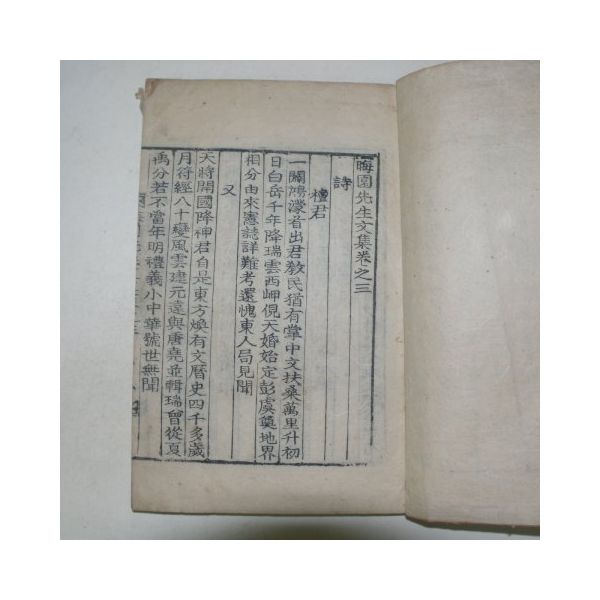 晦園先生文集卷之三
詩
檀君
一闢鴻濛首出君敎民猶有掌中文扶桑萬里升初
日白岳千年降瑞雲西岬俔天婚始定彭虞奠地界
相分由來憲誌詳難考還愧東人局見聞
又
天將開國降神君自是東方煥有文曆史四千多歲
月符經八十變風雲建元遠與唐堯並輯瑞曾從夏
禹分若不當年明禮義小中華號世無聞